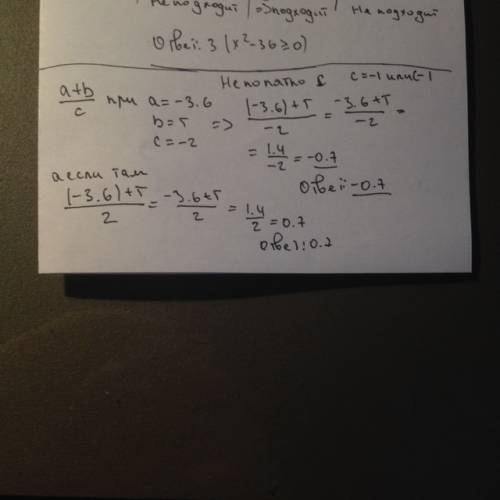 не подходит | => подходит | не подходит
Ответ: 3 (x²-36≥0)
Непонятно c=-1 или (-1
a+b/c при a=-3.6
b=5 => (-3.6)+5/-2 = -3.6+5/-2 =
c=-2
= 1.4/-2 = -0.7
Ответ: -0.7
а если там
(-3.6)+5/2 = -3.6+5/2 = 1.4/2 = 0.7
Ответ: 0.7